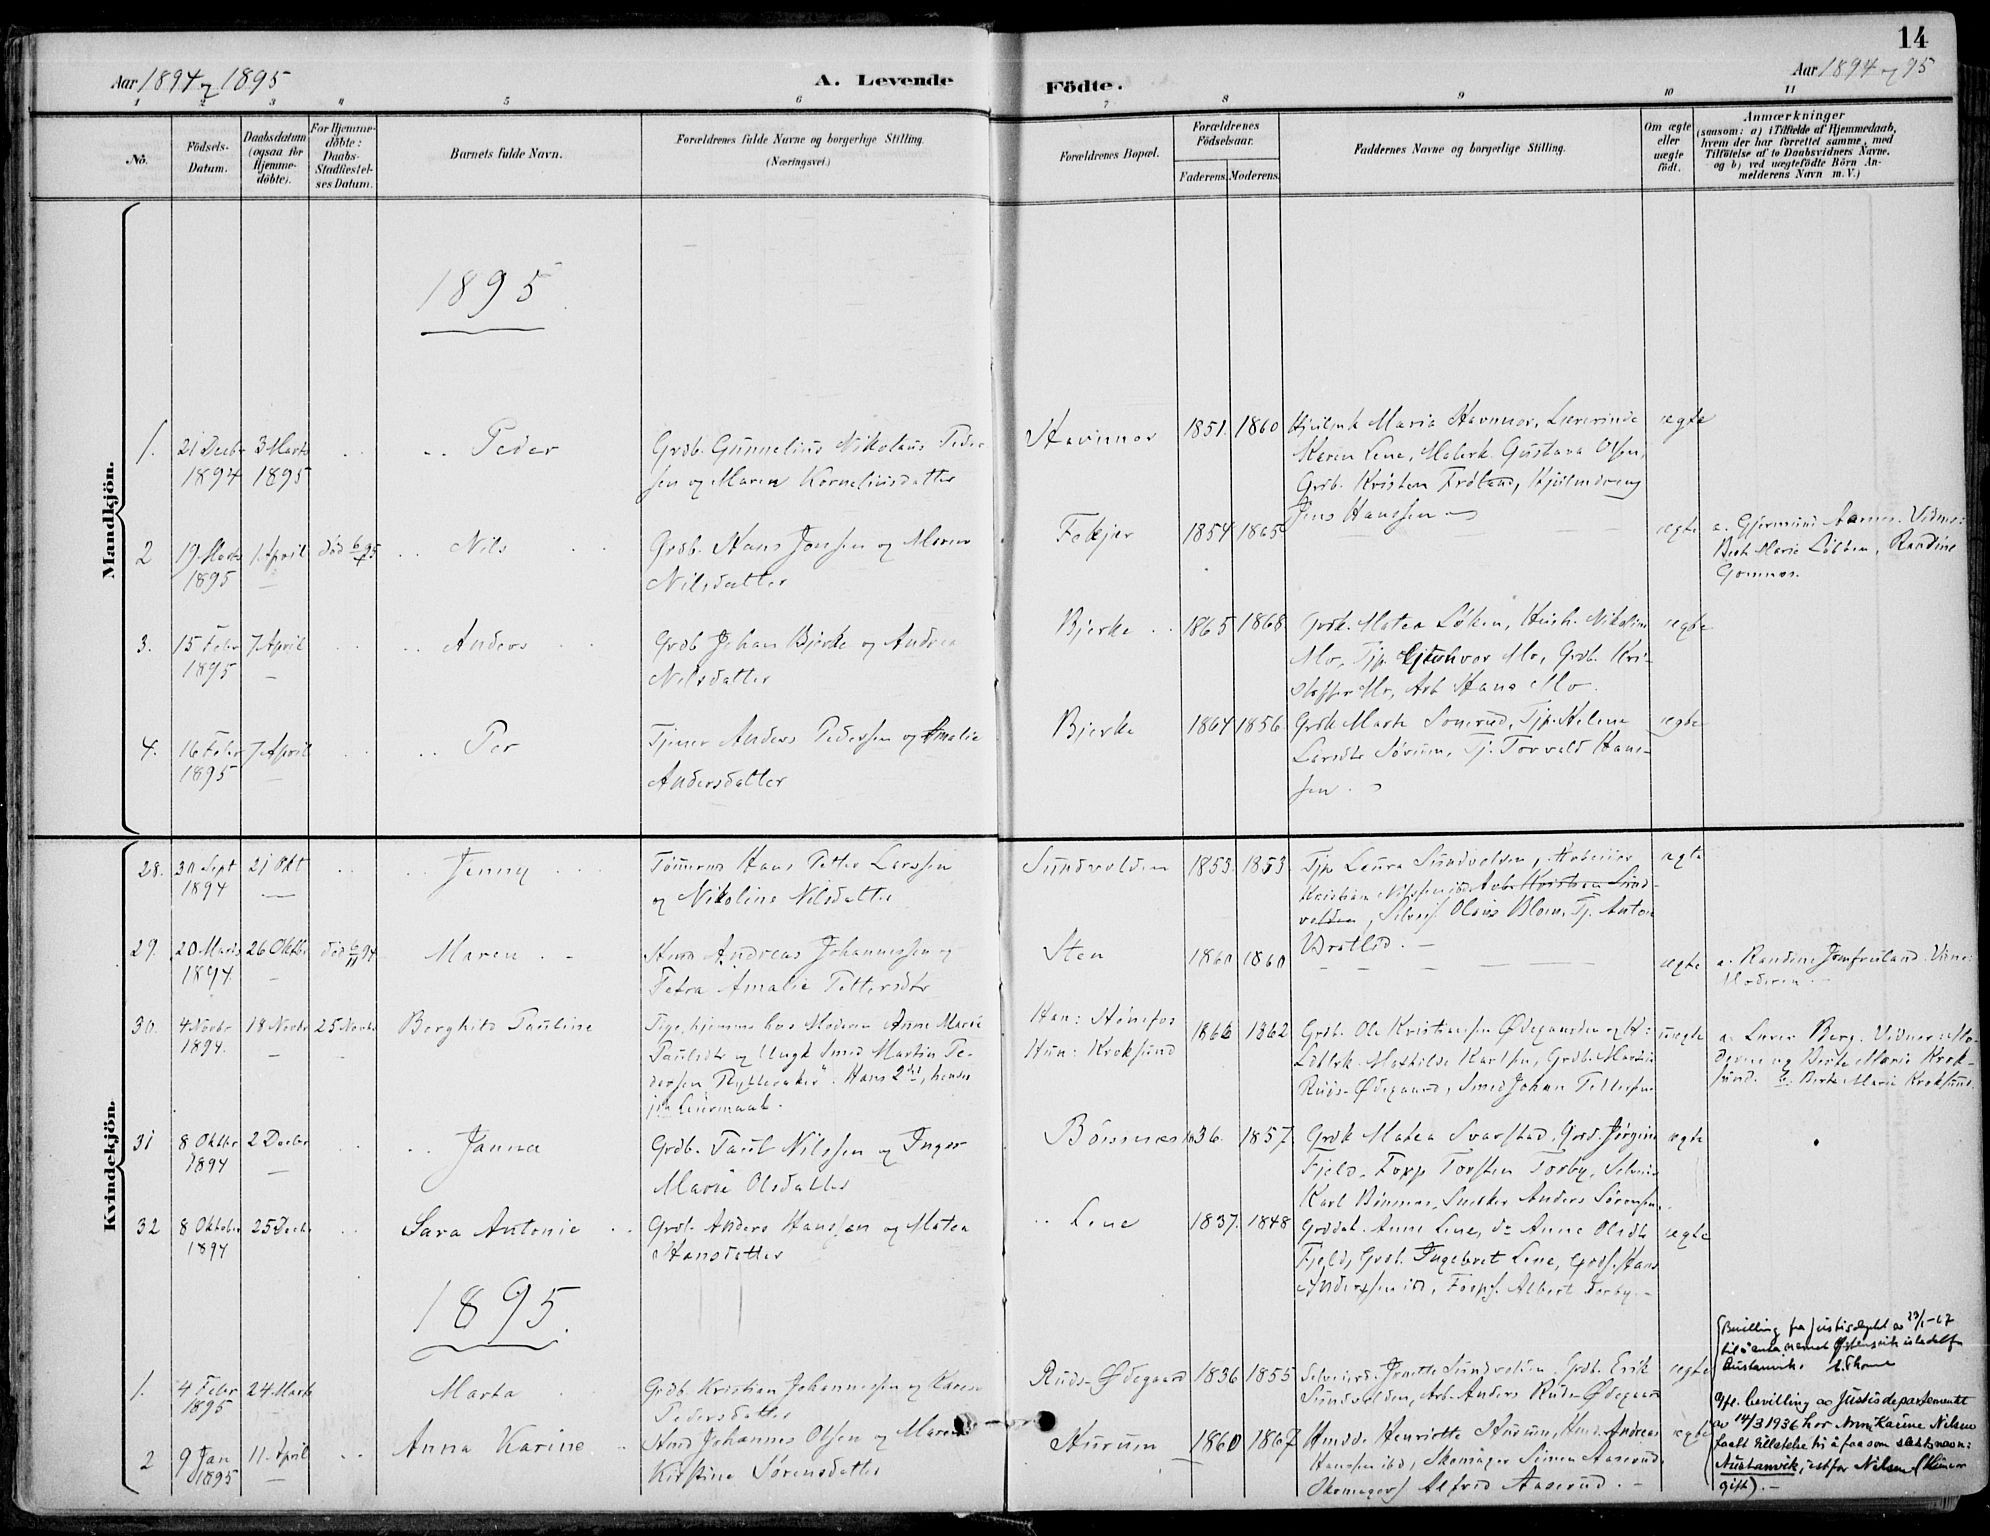 14
Aar 1894 og 1895
A. Levende
Födte.
Aar 1894 og 95
1 2 3 4 5 6 7 8 9 10 11
No.
Födsels-
Datum.
Daabsdatum
(ogsaa for
Hjemme-
döbte).
For Hjemme-
döbte:
Daabs-
Stadfæstel-
ses Datum.
Barnets fulde Navn.
Forældrenes fulde Navne og borgerlige Stilling
(Næringsvei.)
Forældrenes Bopæl.
Forældrenes
Födselsaar.
Faderens. Moderens.
Faddernes Navne og borgerlige Stilling.
Om ægte
eller
uægte
födt.
Anmærkninger
(saasom: a) i Tilfælde af Hjemmedaab,
hvem der har forrettet samme, med
Tilföielse af to Daabsvidners Navne.
og b) ved uægtefödte Börn An-
melderens Navn m. V.)
Mandkjön.
1895
1. 21 Decbr 1894
3 Marts 1895
Peder
Grdb. Gunnelius Nikolaus Peder-
sen og Maren Korneliusdatter
Havnnor
1851. 1860
Maria Havnnor, Lærerinde
Karen Lene, Gustava Olsen,
Grdb. Kristen Frøland,
Jens Hanssen
ægte
2 19 Marts 1895
1 April
død 6/4 95
Nils
Grdb. Hans Jonssen og Maren
Nilsdatter
Fekjær
1854 1865
ægte
a. Gjermund Aarnes. Vidner:
Marie Løkken, Randine
Gomnæs.
3. 15 Febr 1895
7 April
Anders
Grdb Johan Bjerke og Andrea
Nilsdatter
Bjerke
1865 1868
Grdk. Matea Løken, Nikoline
Mo, Tjp. Mo, Grdb. Kri-
stoffer Mo, Arb Hans Mo.
ægte
4. 16 Febr 1895
7 April
Per
Tjener Anders Pedersen og Amalie
Andersdatter
Bjerke
1864 1856
Grdk Marte Sonerud, Tjp. Helene
Larsdtr Sørum, Tj. Torvald Hans-
sen.
ægte
Kvindekjön.
28. 30 Sept 1894
21 Okt
Jenny
Tømmermd Hans Petter Larssen
og Nikoline Nilsdatter
Sundvolden
1853 1853
Tjp Laura Sundvolden, Arbeider
Kristian Nilssen ibd Arb. Kristian Sund-
volden, Olaus Blom, Tj. Anton
Urdtlid.
ægte
29. 20 Marts 1894
26 Oktbr
død 6/11 94
Maren
Andreas Johannessen og
Petra Amalie Pettersdtr
Sten
1860 1860
ægte
a. Randine Jomfruland. Vidne:
Moderen.
30. 4 Novbr 1894.
18 Novbr
25 Novbr
Berghild Pauline
Pige, hjemme hos Moderen Anne Marie
Paulsdtr og Ungk Smed Martin Pe-
dersen . Hans 2det, hendes
1ste Leiermaal.
Han: Hønefos
Hun: Kroksund
1866 1862
Grdb. Ole Kristiansen Ødegaarden og H:
Mathilde Karlsen, Grdb. Martin
Ruds-Ødegaard, Smed Johan Pettersen
uægte
a. Lærer Berg. Vidner: Mo-
deren og Berte Marie Krok-
sund. b. Berte Marie Kroksund.
31 8 Oktbr 1894
2 Decbr
Janna
Grdb. Paul Nilssen og Inger
Marie Olsdatter
Bönsnæs
1836. 1857.
Grdk Matea Svarstad, Jørgine
Fjeld, Torsten Torby,
Karl Bönsnæs, Snedker Anders Sörensen.
ægte
32 8 Oktober 1894
25 Decbr
Sara Antonie
Grdb. Anders Hanssen og Matea
Hansdatter
Lene
1837. 1848
Anne Lene, do Anne Olsdtr
Fjeld, Grdb. Ingebret Lene, Hans
Anderssen ibd, Albert Torby.
ægte
1895.
1. 4 Febr 1895
24 Marts
Marta
Grdb. Kristian Johannessen og Karen
Pedersdatter
Ruds-Ødegaard
1836 1855
Sundvolden, Grdb. Erik
Sundvolden, Arb. Anders Ruds-Ødegaard
ægte
(Bevilling fra Justisdeptet av 23/1-67
til å anta navnet Østensvik istedetfor
Austanvik.
2 9 Jan 1895
11 April
Anna Karine
Hmd Johannes Olsen og Maren
Kirstine Sørensdatter
Hurum
1860 1867
Henriette Hurum, Hmd. Andreas
Hanssen ibd, Skomager Simen Aaserud,
Skomagers Alfred Aaserud.
ægte
Ifl. bevilling av Justisdepartementet
av 14/3 1936 har Ann Karine Nilsen
faatt tillatelse til å faa som slektsnavn:
Austanvik, istfor Nilsen (
gift).